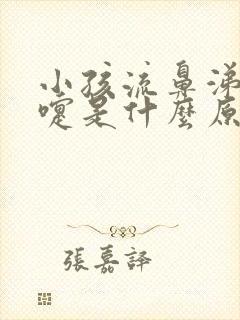 小孩流鼻涕
嚏是什麼原
張嘉譯